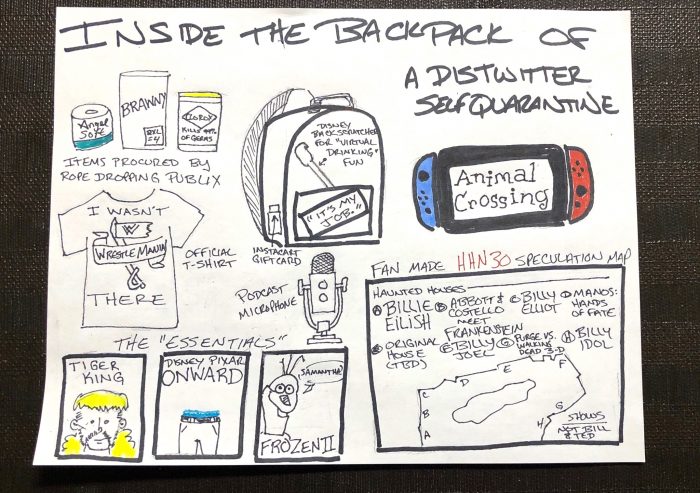 INSIDE THE BACKPACK OF
A DISTWITTER
SELF QUARANTINE
Angel
Soft
BRAWNY
8XL
=4
KILLS 99%
OF GERMS
ITEMS PROCURED BY
ROPE DROPPING PUBLIX
DISNEY
BACKSCRATCHER
FOR "VIRTUAL
DRINKING"
FUN
"IT'S MY
JOB."
INSTACART
GIFTCARD
Animal
Crossing
I WASN'T
WRESTLEMANIA
THERE
OFFICIAL
T-SHIRT
PODCAST
MICROPHONE
THE "ESSENTIALS"
TIGER
KING
DISNEY PIXAR
ONWARD
SAMANTHA?
FROZEN II
FAN MADE HHN30 SPECULATION MAP
HAUNTED HOUSES
A BILLIE
EILISH
B ABBOTT &
COSTELLO
MEET
FRANKENSTEIN
C BILLY
ELLIOT
D MANOS:
HANDS
OF FATE
ORIGINAL
HOUSE
(TBD)
BILLY
JOEL
G PURGE VS.
WALKING
DEAD 3-D
H BILLY
IDOL
A
B
C
D
E
F
G
H
SHOWS
NOT BILL
& TED